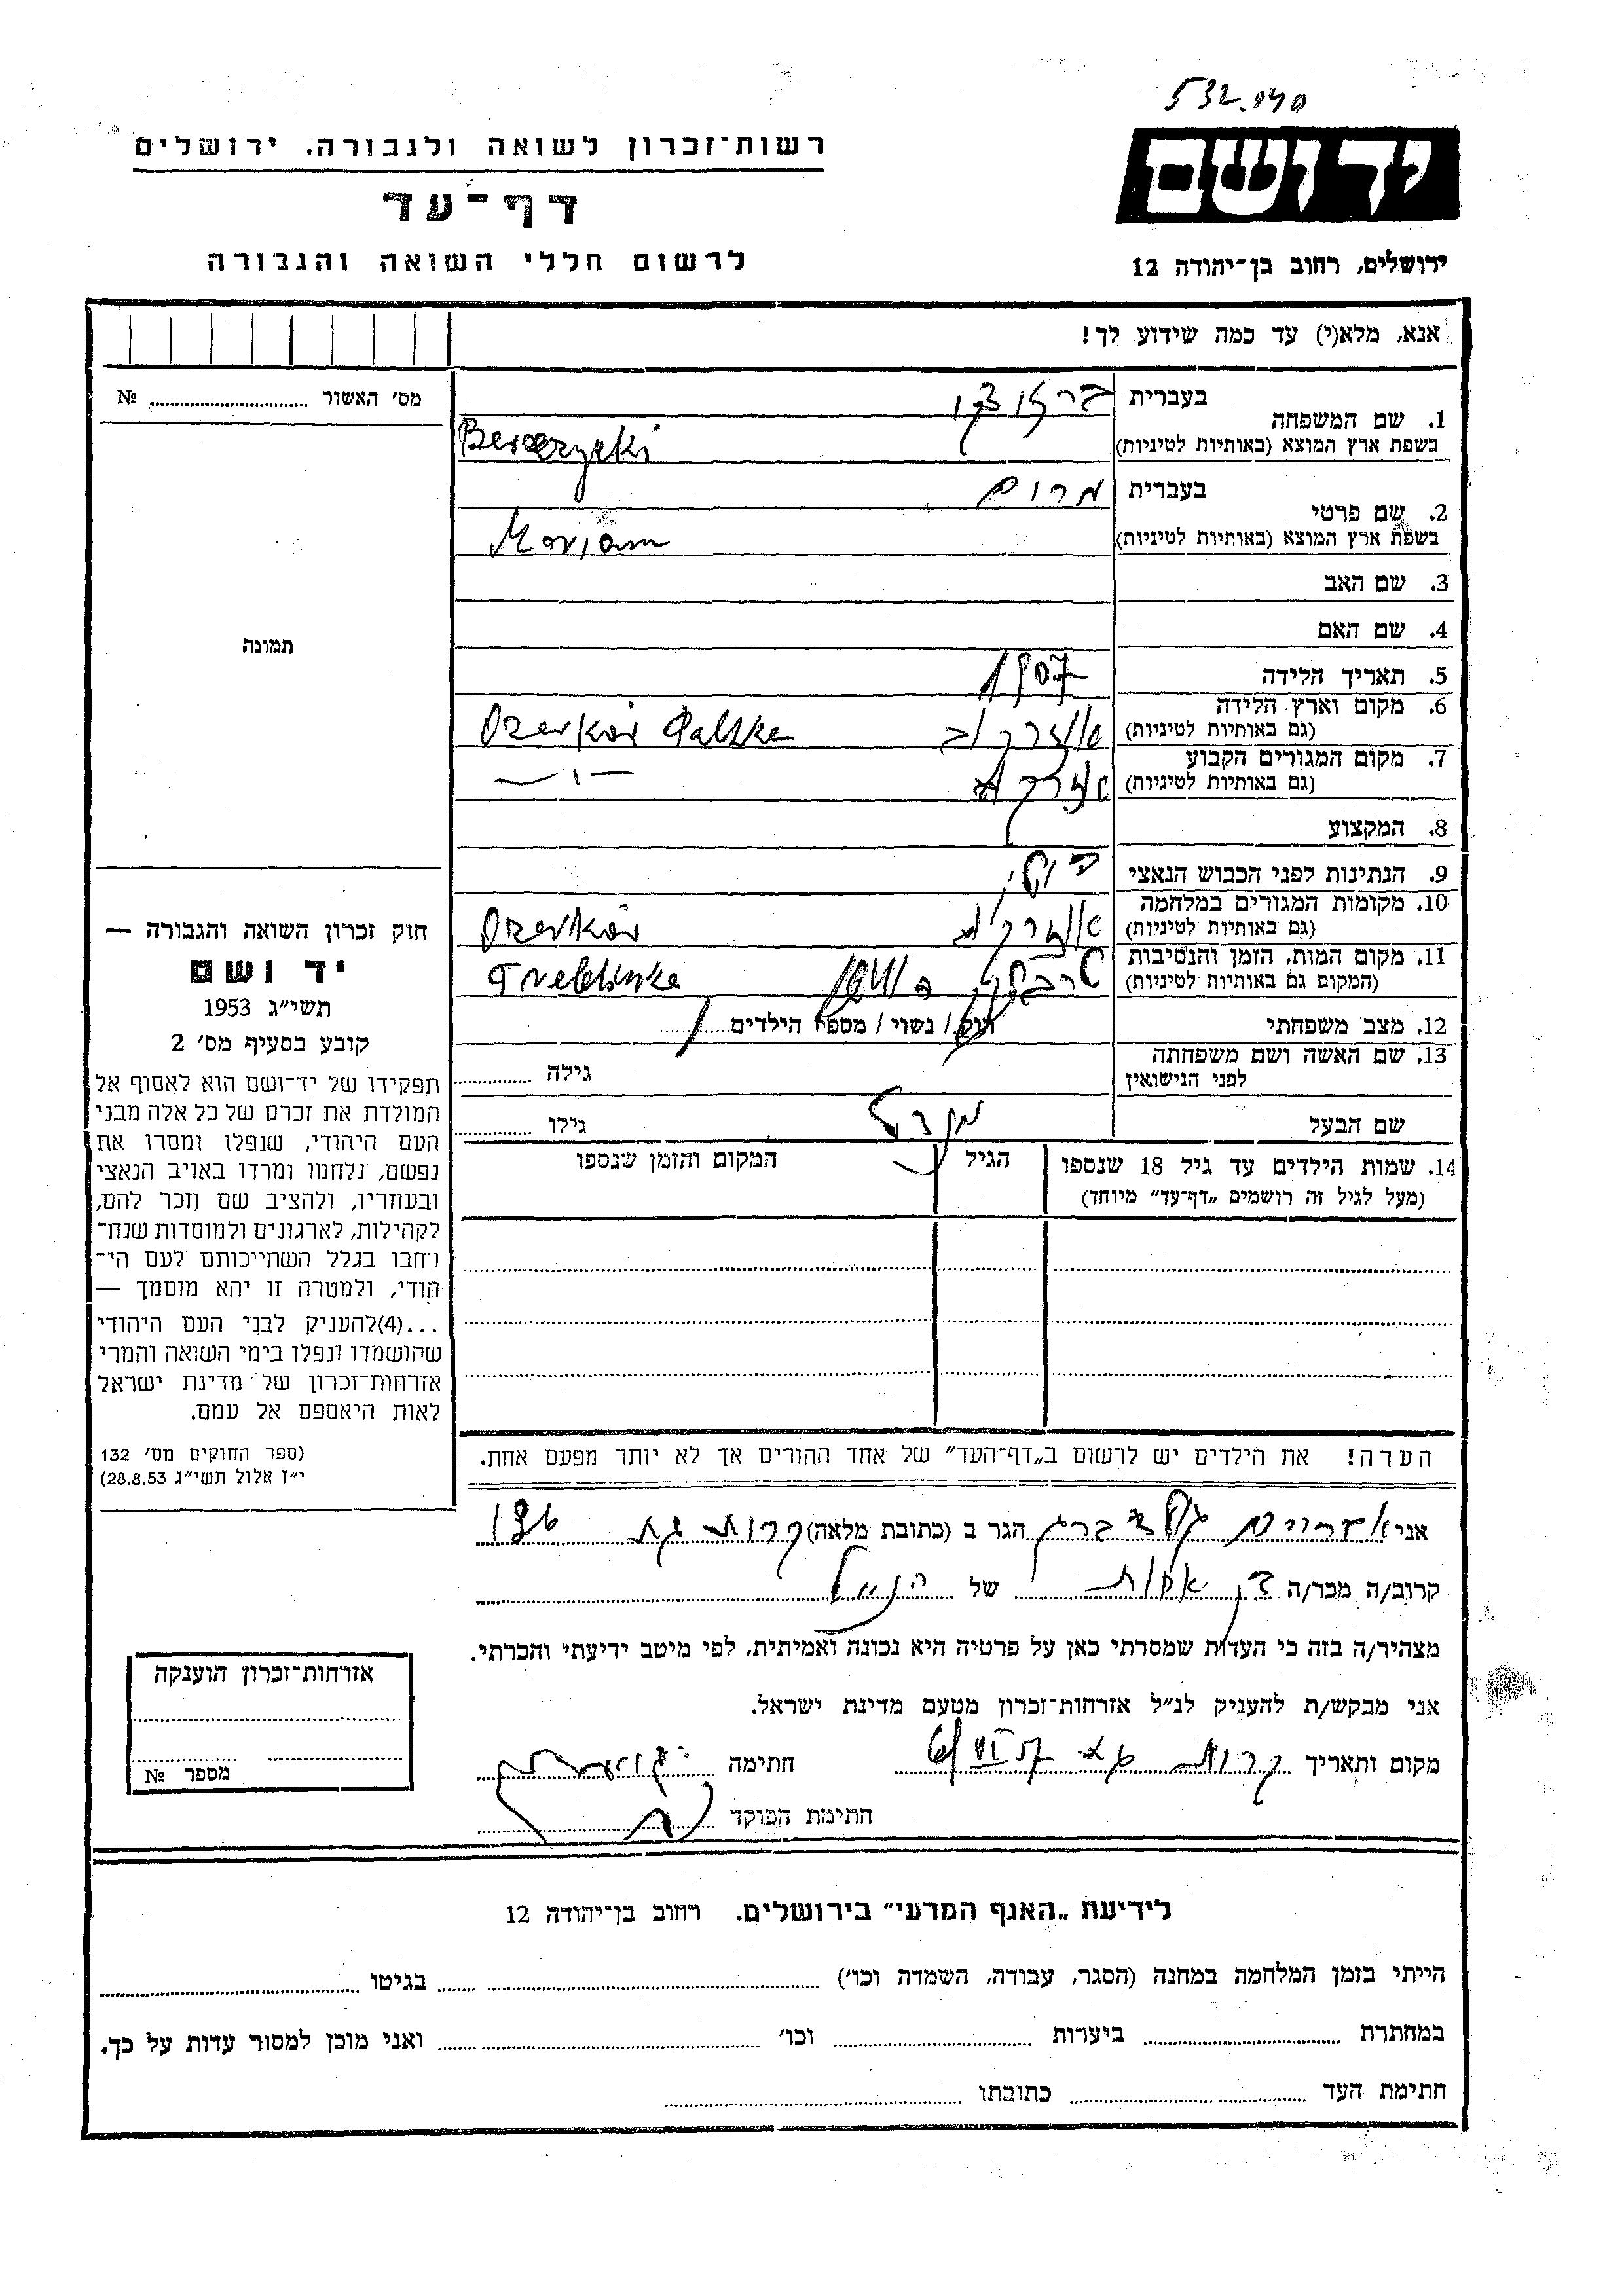 532.140
רשות־זכרון לשואה ולגבורה. ירושלים
דף־עד
לרשום חללי השואה והגבורה
יד ושם
ירושלים, רחוב בן־יהודה 12
אנא, מלא(י) עד כמה שידוע לך!
מס׳ האשור № 
תמונה
1. שם המשפחה
בעברית
בשפת ארץ המוצא (באותיות לטיניות)
2. שם פרטי
בעברית מרים
בשפת ארץ המוצא (באותיות לטיניות) Moriam
3. שם האב
4. שם האם
5. תאריך הלידה 1907
6. מקום וארץ הלידה
(גם באותיות לטיניות) Ozerków
7. מקום המגורים הקבוע
(גם באותיות לטיניות) -"-
8. המקצוע
9. הנתינות לפני הכבוש הנאצי
10. מקומות המגורים במלחמה
(גם באותיות לטיניות) Ozerków
11. מקום המות, הזמן והנסיבות
(המקום גם באותיות לטיניות)
12. מצב משפחתי רוק / נשוי / מספר הילדים
13. שם האשה ושם משפחתה
לפני הנישואין גילה
שם הבעל גילו
14. שמות הילדים עד גיל 18 שנספו הגיל המקום והזמן שנספו
(מעל לגיל זה רושמים „דף־עד״ מיוחד)
חוק זכרון השואה והגבורה —
יד ושם
תשי״ג 1953
קובע בסעיף מס׳ 2
תפקידו של יד־ושם הוא לאסוף אל
המולדת את זכרם של כל אלה מבני
העם היהודי, שנפלו ומסרו את
נפשם, נלחמו ומרדו באויב הנאצי
ובעוזריו, ולהציב שם וזכר להם,
לקהילות, לארגונים ולמוסדות שנח־
רחבו בגלל השתייכותם לעם הי־
הודי, ולמטרה זו יהא מוסמך —
...(4)להעניק לבני העם היהודי
שהושמדו ונפלו בימי השואה והמרי
אזרחות־זכרון של מדינת ישראל
לאות היאספם אל עמם.
(ספר החוקים מס׳ 132
י״ז אלול תשי״ג 28.8.53)
הערה! את הילדים יש לרשום ב„דף־העד״ של אחד ההורים אך לא יותר מפעם אחת.
אני הגר ב (כתובת מלאה) קרית גת
קרוב/ה מכר/ה בן אחות של הנ״ל
מצהיר/ה בזה כי העדות שמסרתי כאן על פרטיה היא נכונה ואמיתית, לפי מיטב ידיעתי והכרתי.
אני מבקש/ת להעניק לנ״ל אזרחות־זכרון מטעם מדינת ישראל.
מקום ותאריך קרית גת חתימה
חתימת הפוקד
אזרחות־זכרון הוענקה
מספר №
לידיעת „האגף המדעי״ בירושלים. רחוב בן־יהודה 12
הייתי בזמן המלחמה במחנה (הסגר, עבודה, השמדה וכו׳) בגיטו
במחתרת ביערות וכו׳ ואני מוכן למסור עדות על כך.
חתימת העד כתובתו